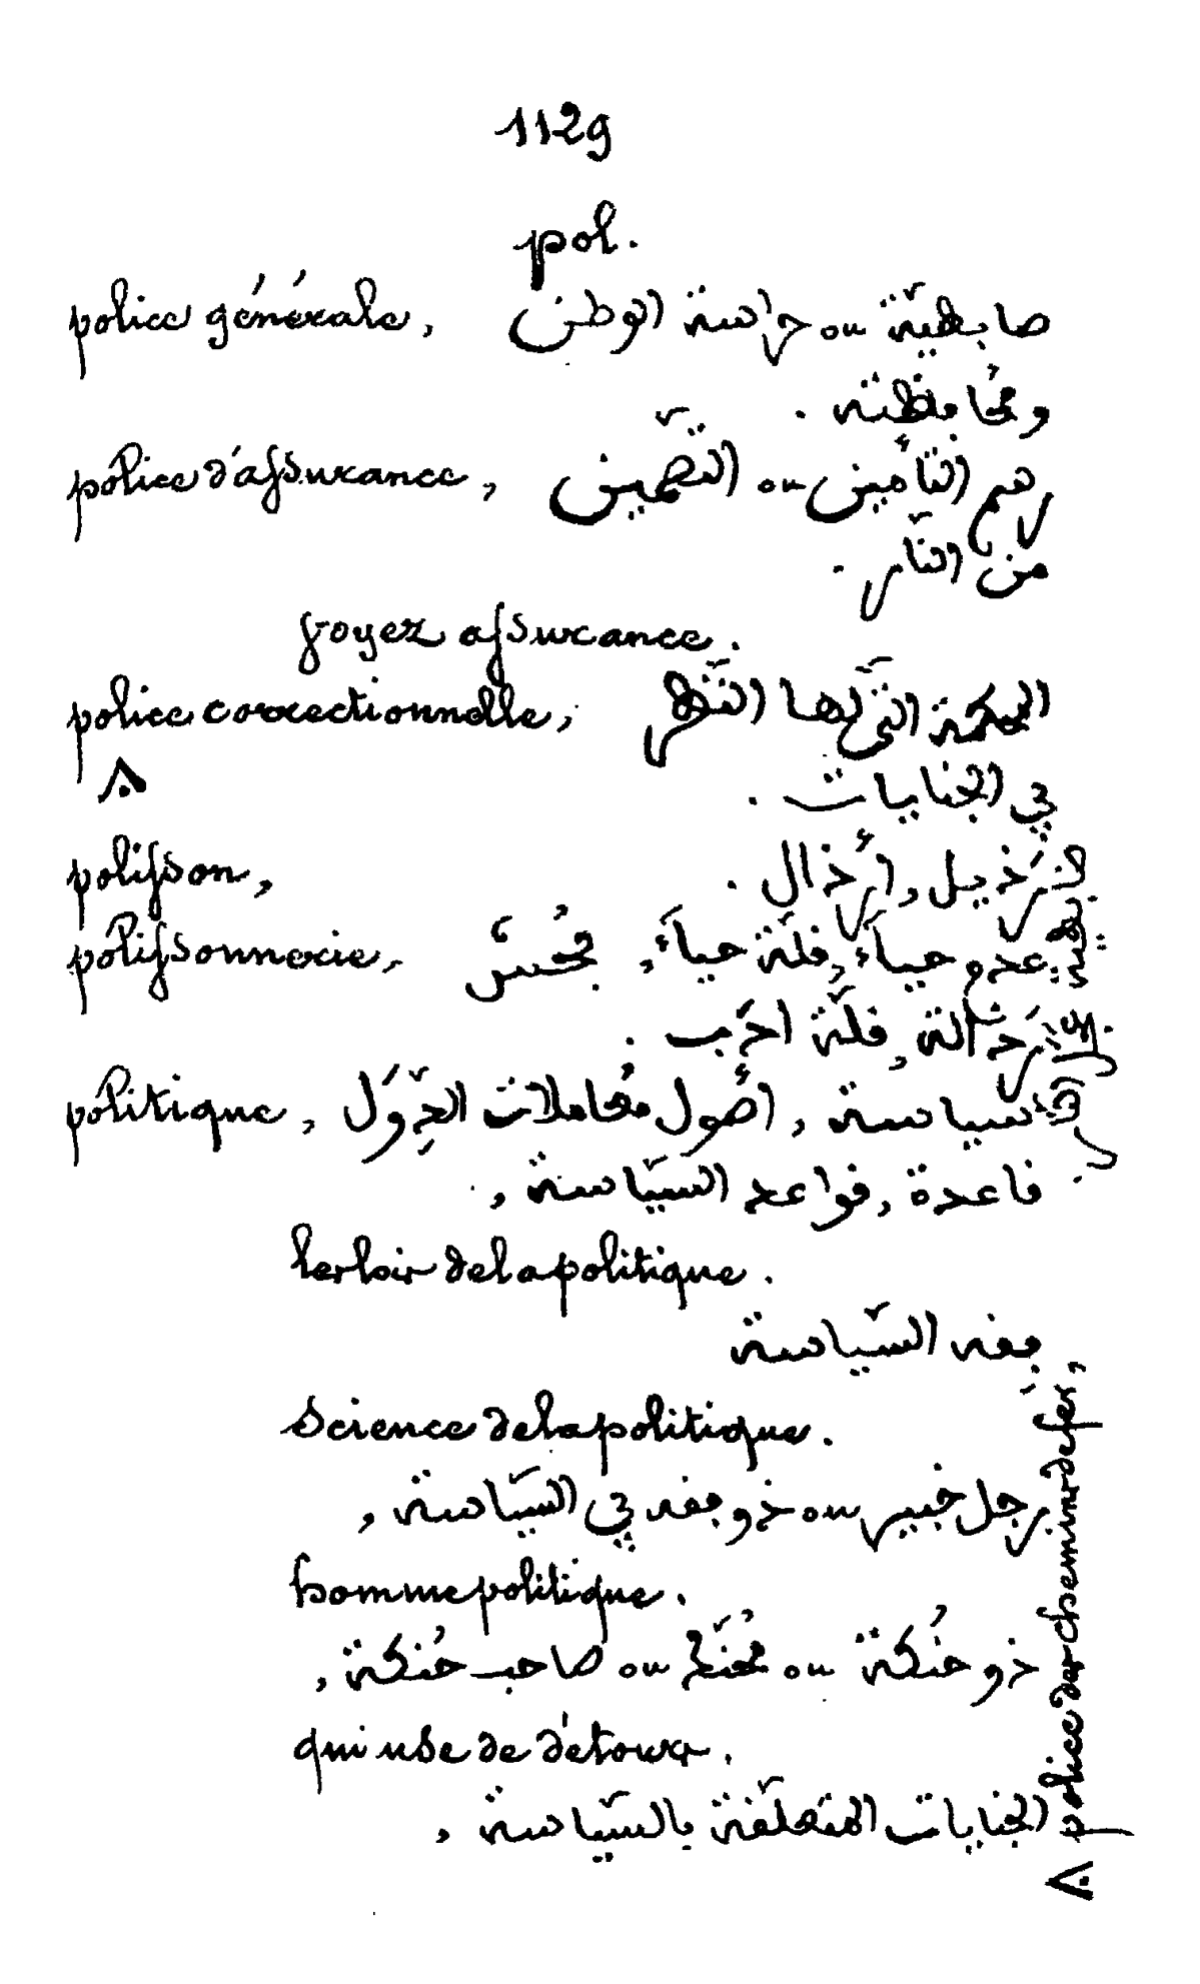 1129
pol.
police générale, ضابطيّة ou حراسة الوطن
ومُحافظته .
police d'assurance, رسم التّأمين ou التّضمين
من النّار .
voyez assurance.
police correctionnelle, المحكمة التّي لها النّظر
في الجنايات .
polisson, رذيل, أرذال .
polissonnerie, عدم حياء, قلّة حياء, فُحش
رذالة, قلّة أدب .
politique, سياسة, أصول مُعاملات الدِّوَل
قاعدة, قواعد السّياسة,
les lois de la politique.
فقه السّياسة
science de la politique.
رجل خبير ou ذو فقه في السّياسة,
homme politique.
ذو حُنكة ou مُحنّك ou صاحب حُنكة,
qui use de détours.
الجنايات المتعلّقة بالسّياسة,
police des chemins de fer,